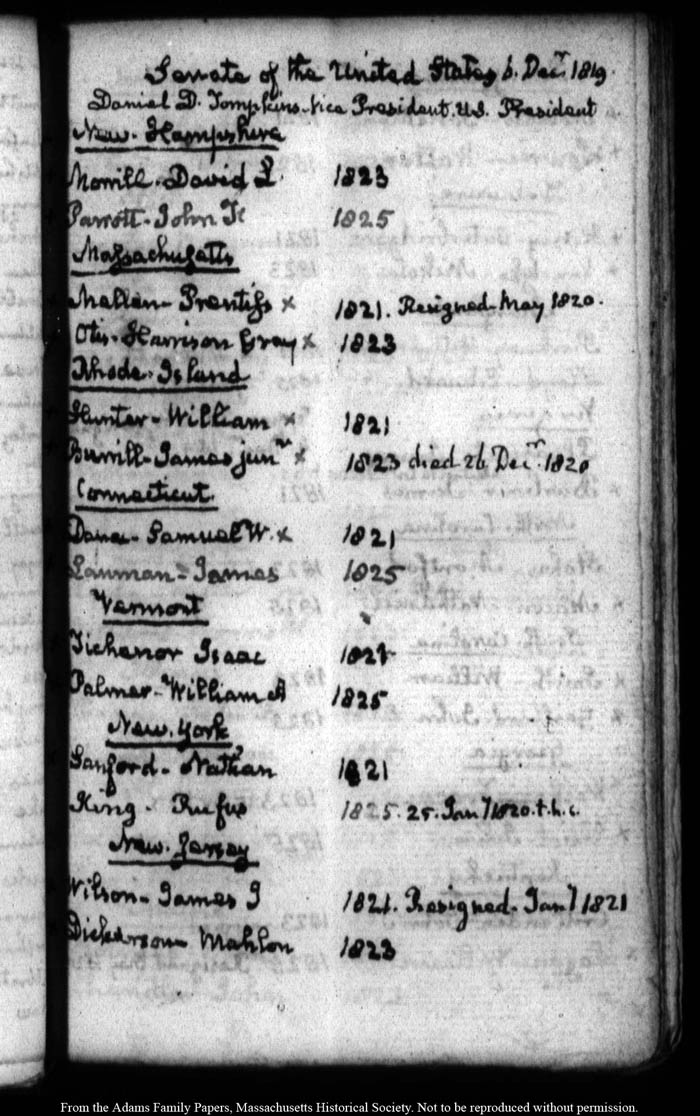 Senate of the United States 6. Decr 1819.
Daniel D. Tompkins. Vice President. U.S. President
New. Hampshire
Morrill. David L. 1823
Parrott. John F. 1825
Massachusetts
Mellen. Prentiss x 1821. Resigned. May 1820.
Otis. Harrison Gray x 1823
Rhode. Island
Hunter. William x 1821
Burrill. James junr x 1823 died 26 Decr. 1820
Connecticut.
Dana. Samuel W. x 1821
Lanman. James 1825
Vermont
Tichenor Isaac 1821
Palmer. William A 1825
New. York
Sanford. Nathan 1821
King. Rufus 1825. 25. Jany 1820. t.h.c.
New. Jersey
Wilson. James J 1821. Resigned. Jany 1821
Dickerson. Mahlon 1823
From the Adams Family Papers, Massachusetts Historical Society. Not to be reproduced without permission.